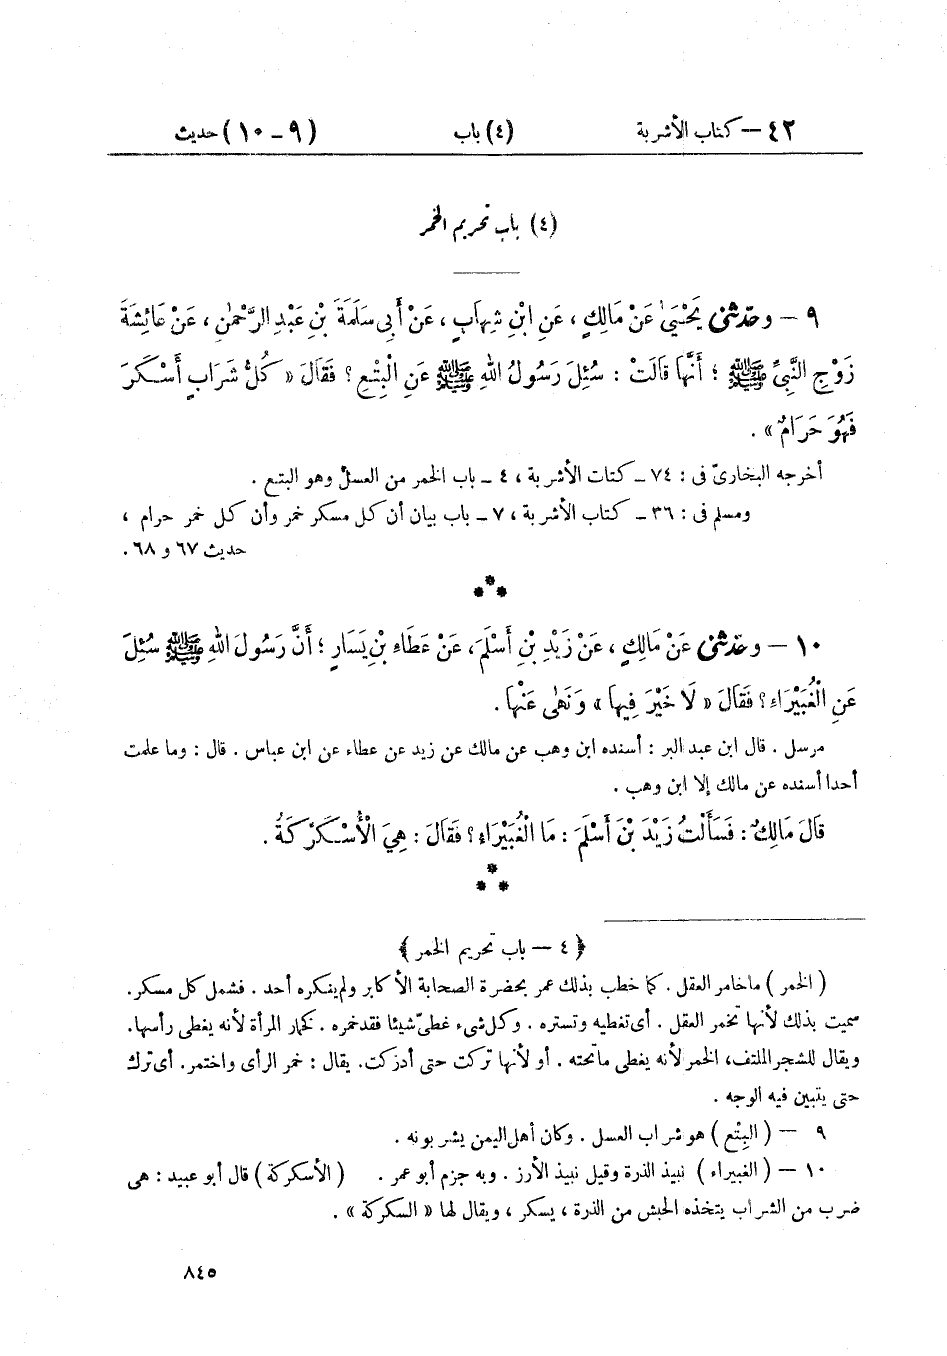 ٤٢ – كتاب الأشربة (٤) باب (٩ – ١٠) حديث
(٤) باب تحريم الخمر
٩ – وحدّثنى يَحْيَىٰ عَنْ مَالِكٍ ، عَنِ ابْنِ شِهَابٍ ، عَنْ أَبِى سَلَمَةَ بْنِ عَبْدِ الرَّحْمٰنِ ، عَنْ عَائِشَةَ
زَوْجِ النَّبِىِّ ﷺ ؛ أَنَّهَا قَالَتْ : سُئِلَ رَسُولُ اللهِ ﷺ عَنِ الْبِتْعِ ؟ فَقَالَ « كُلُّ شَرَابٍ أَسْكَرَ
فَهُوَ حَرَامٌ » .
أخرجه البخارىّ فى : ٧٤ – كتاب الأشربة ، ٤ – باب الخمر من العسل وهو البتع .
ومسلم فى : ٣٦ – كتاب الأشربة ، ٧ – باب بيان أن كل مسكر خمر وأن كل خمر حرام ،
حديث ٦٧ و ٦٨ .
١٠ – وحدّثنى عَنْ مَالِكٍ ، عَنْ زَيْدِ بْنِ أَسْلَمَ، عَنْ عَطَاءِ بْنِ يَسَارٍ ؛ أَنَّ رَسُولَ اللهِ ﷺ سُئِلَ
عَنِ الْغُبَيْرَاءِ ؟ فَقَالَ « لَا خَيْرَ فِيهَا » وَنَهَىٰ عَنْهَا .
مرسل . قال ابن عبد البر : أسنده ابن وهب عن مالك عن زيد عن عطاء عن ابن عباس . قال : وما علمت
أحدا أسنده عن مالك إلا ابن وهب .
قَالَ مَالِكٌ : فَسَأَلْتُ زَيْدَ بْنَ أَسْلَمَ : مَا الْغُبَيْرَاءِ ؟ فَقَالَ : هِيَ الْأُسْكَرْكَةُ .
﴿ ٤ — باب تحريم الخمر ﴾
( الخمر ) ماخامر العقل . كما خطب بذلك عمر بحضرة الصحابة الأكابر ولم ينكره أحد . فشمل كل مسكر.
سميت بذلك لأنها تخمر العقل . أى تغطيه وتستره . وكل شىء غطىّ شيئا فقد خمره . كخمار المرأة لأنه يغطى رأسها.
ويقال للشجر الملتف، الخمر لأنه يغطى ماتحته . أو لأنها تركت حتى أدركت. يقال : خمر الرأى واختمر. أى ترك
حتى يتبين فيه الوجه .
٩ — ( البِتْع ) هو شراب العسل . وكان أهل اليمن يشربونه .
١٠ – ( الغبيراء ) نبيذ الذرة وقيل نبيذ الأرز . وبه جزم أبو عمر . ( الأسكركة ) قال أبو عبيد : هى
ضرب من الشراب يتخذه الحبش من الذرة ، يسكر ، ويقال لها « السكركة » .
٨٤٥